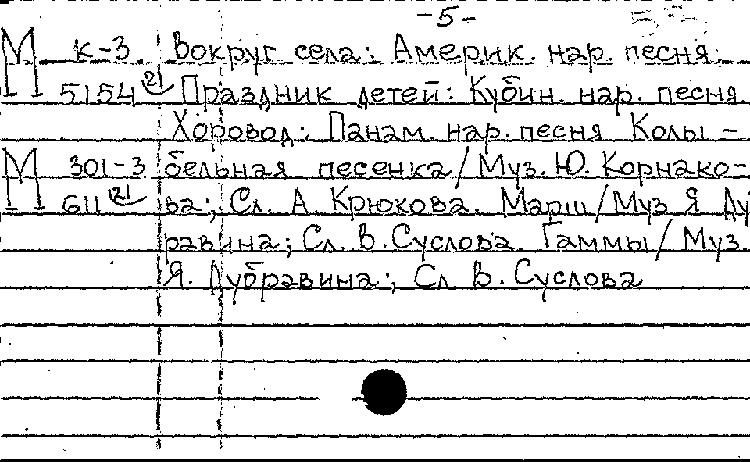 -5-
М К-3 Вокруг села: Америк. нар. песня.
5154 21 Праздник детей: Кубин. нар. песня
Хоровод: Панам. нар. песня Колы-
М 301-3 бельная песенка/Муз. Ю. Корнако-
611 21 ва; Сл. А Крюкова. Марш/Муз Я Ду
бравина; Сл. В. Суслова. Гаммы/Муз.
Я. Дубравина; Сл В. Суслова